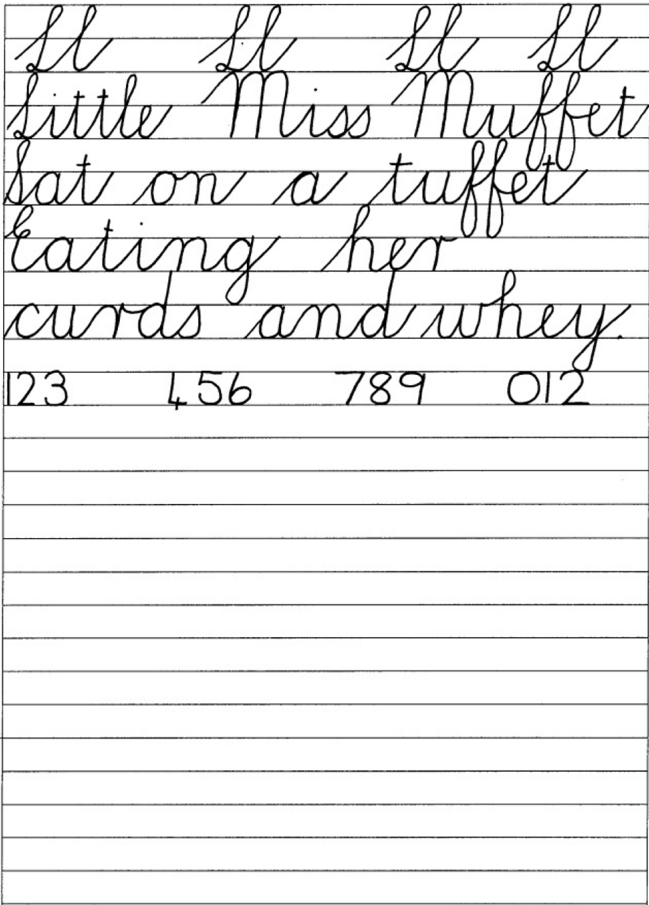 Ll Ll Ll Ll
Little Miss Muffet
Sat on a tuffet
Eating her
curds and whey.
123 456 789 012